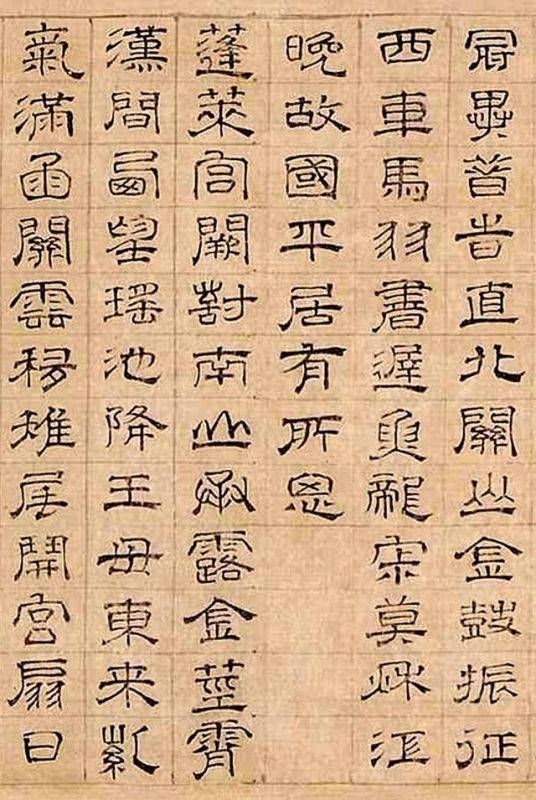 冠異昔旹直北關山金鼓振征
西車馬羽書遲魚龍寂莫秋江
晚故國平居有所思
蓬萊宮闕對南山承露金莖霄
漢間西望瑤池降王母東来紫
氣滿函關雲移雉尾開宮扇日